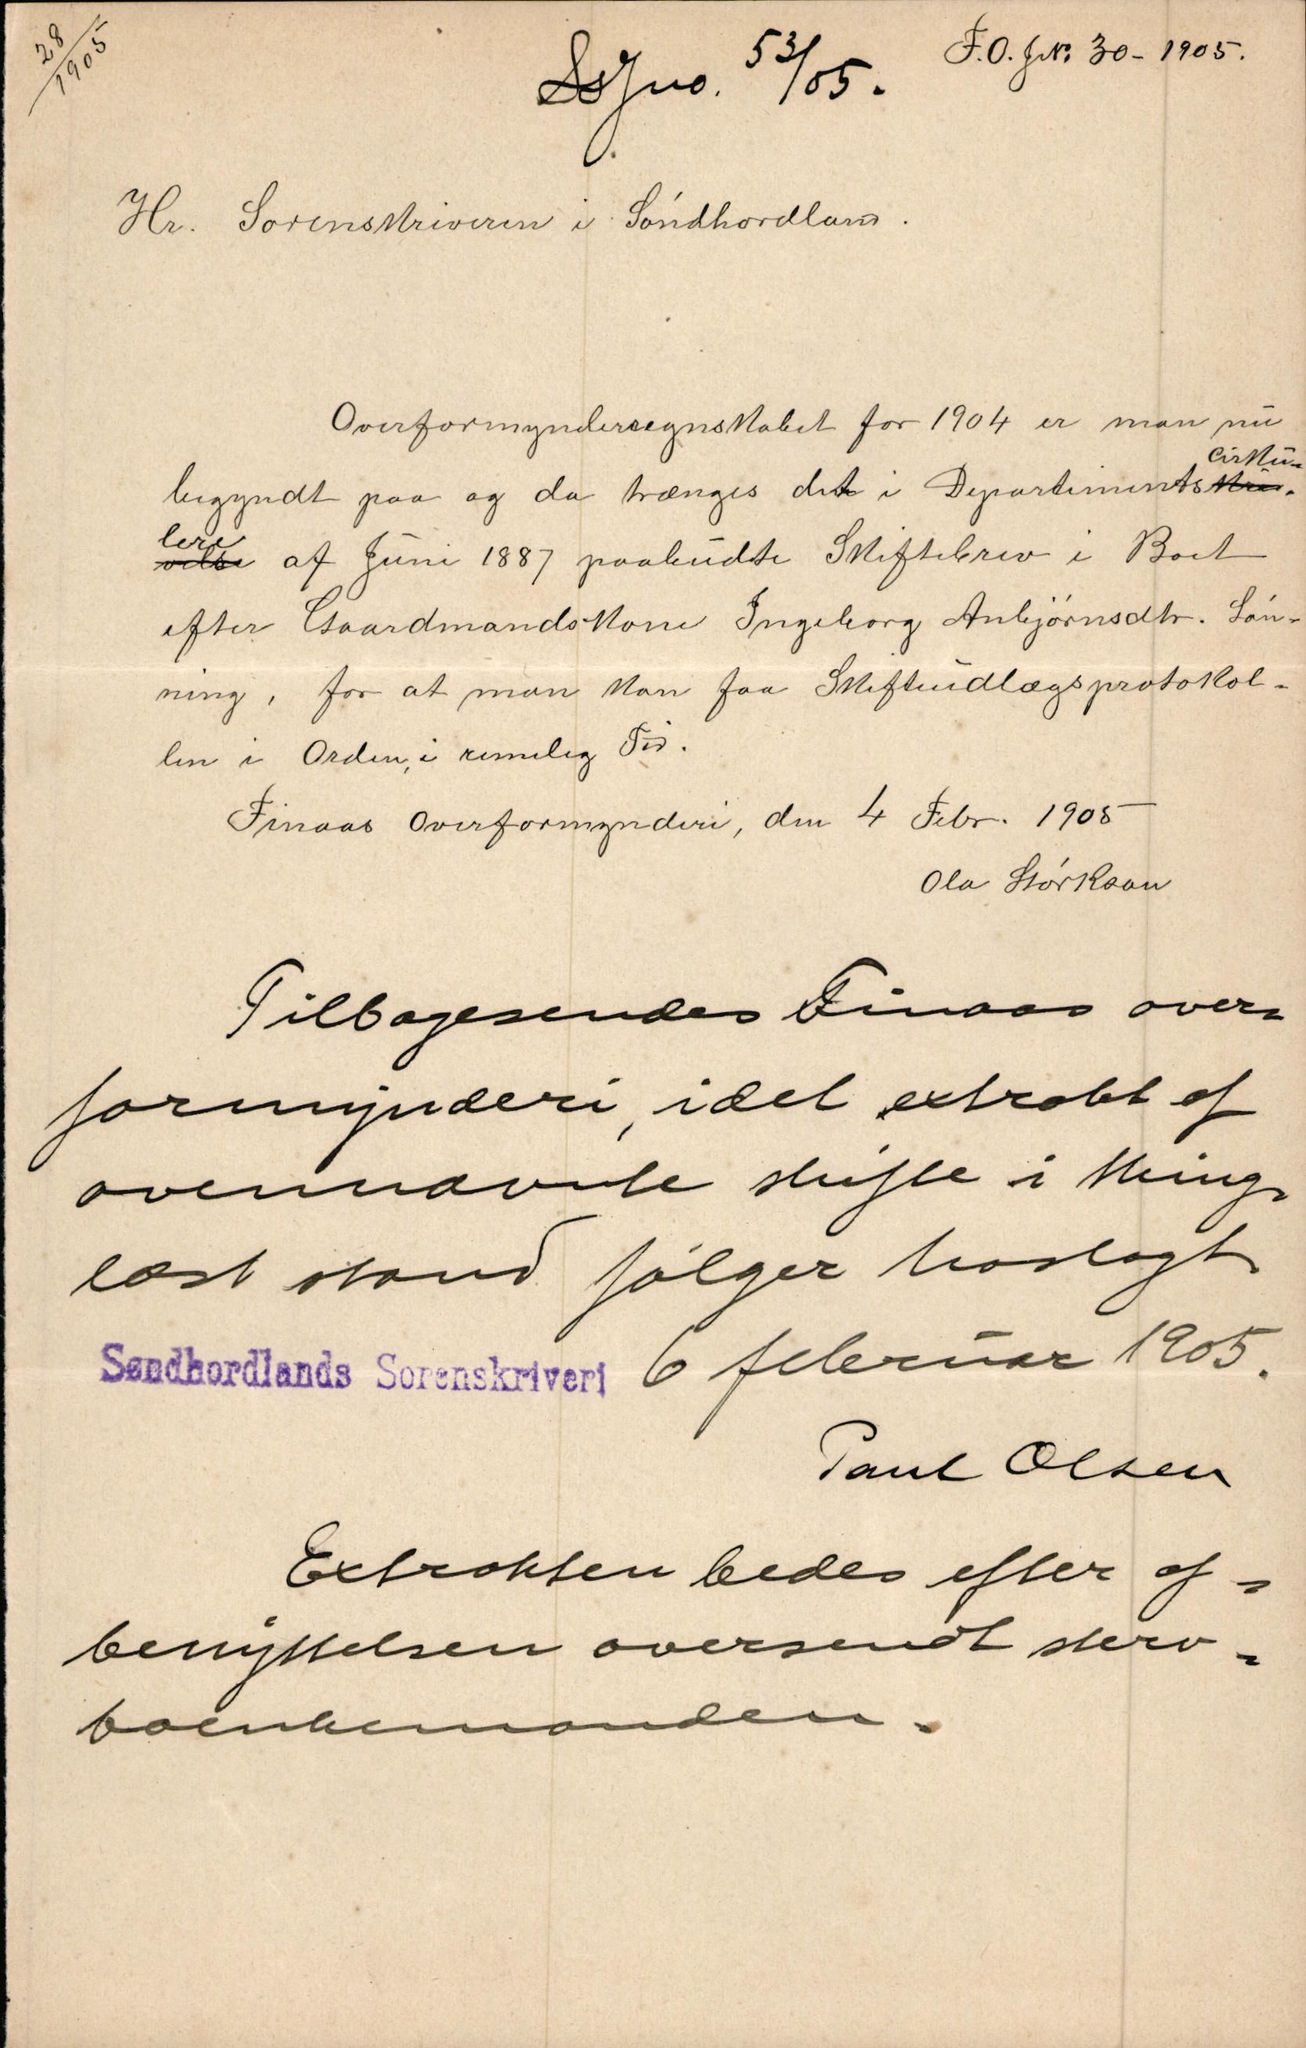 28/1905
Jno. 53/05.
F.O. JNo. 30 - 1905.
Hr. Sorenskriveren i Söndhordland.
Overformynderregnskabet for 1904 er man nu
cirku-
begyndt paa og da trænges det i Departements skri-
lere
velse af Juni 1887 paabudte Skiftebrev i Boet
efter Gaardmandskone Ingeborg Anbjørnsdtr. Søn-
ning, for at man kan faa Skifteudlægsprotokol-
len i Orden, i rimelig Tid.
Finaas Overformynderi, den 4 Febr. 1905
Ola Störkson
Tilbagesendes Finaas over-
formynderi, idet extrakt af
ovennævnte skifte i thing-
læst stand følger hoslagt.
Søndhordlands Sorenskriveri 6 februar 1905.
Paul Olsen
Extrakten bedes efter af-
benyttelsen oversendt sterv-
boenkemanden.